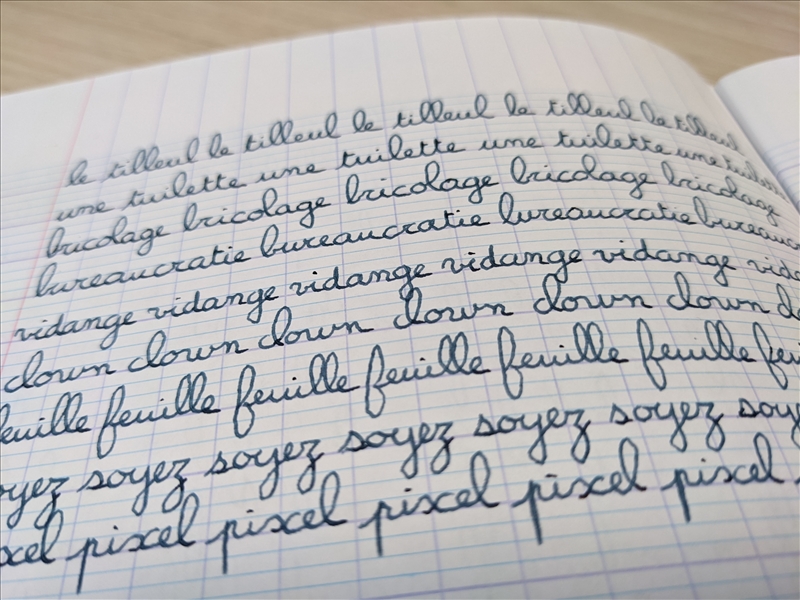 le tilleul le tilleul le tilleul le tilleul le tilleul
une tuilette une tuilette une tuilette une tuilette
bricolage bricolage bricolage bricolage bricolage
bureaucratie bureaucratie bureaucratie bureauc
vidange vidange vidange vidange vidange vida
clown clown clown clown clown clown clown c
feuille feuille feuille feuille feuille feuille feui
oyez soyez soyez soyez soyez soyez soy
xel pixel pixel pixel pixel pixel